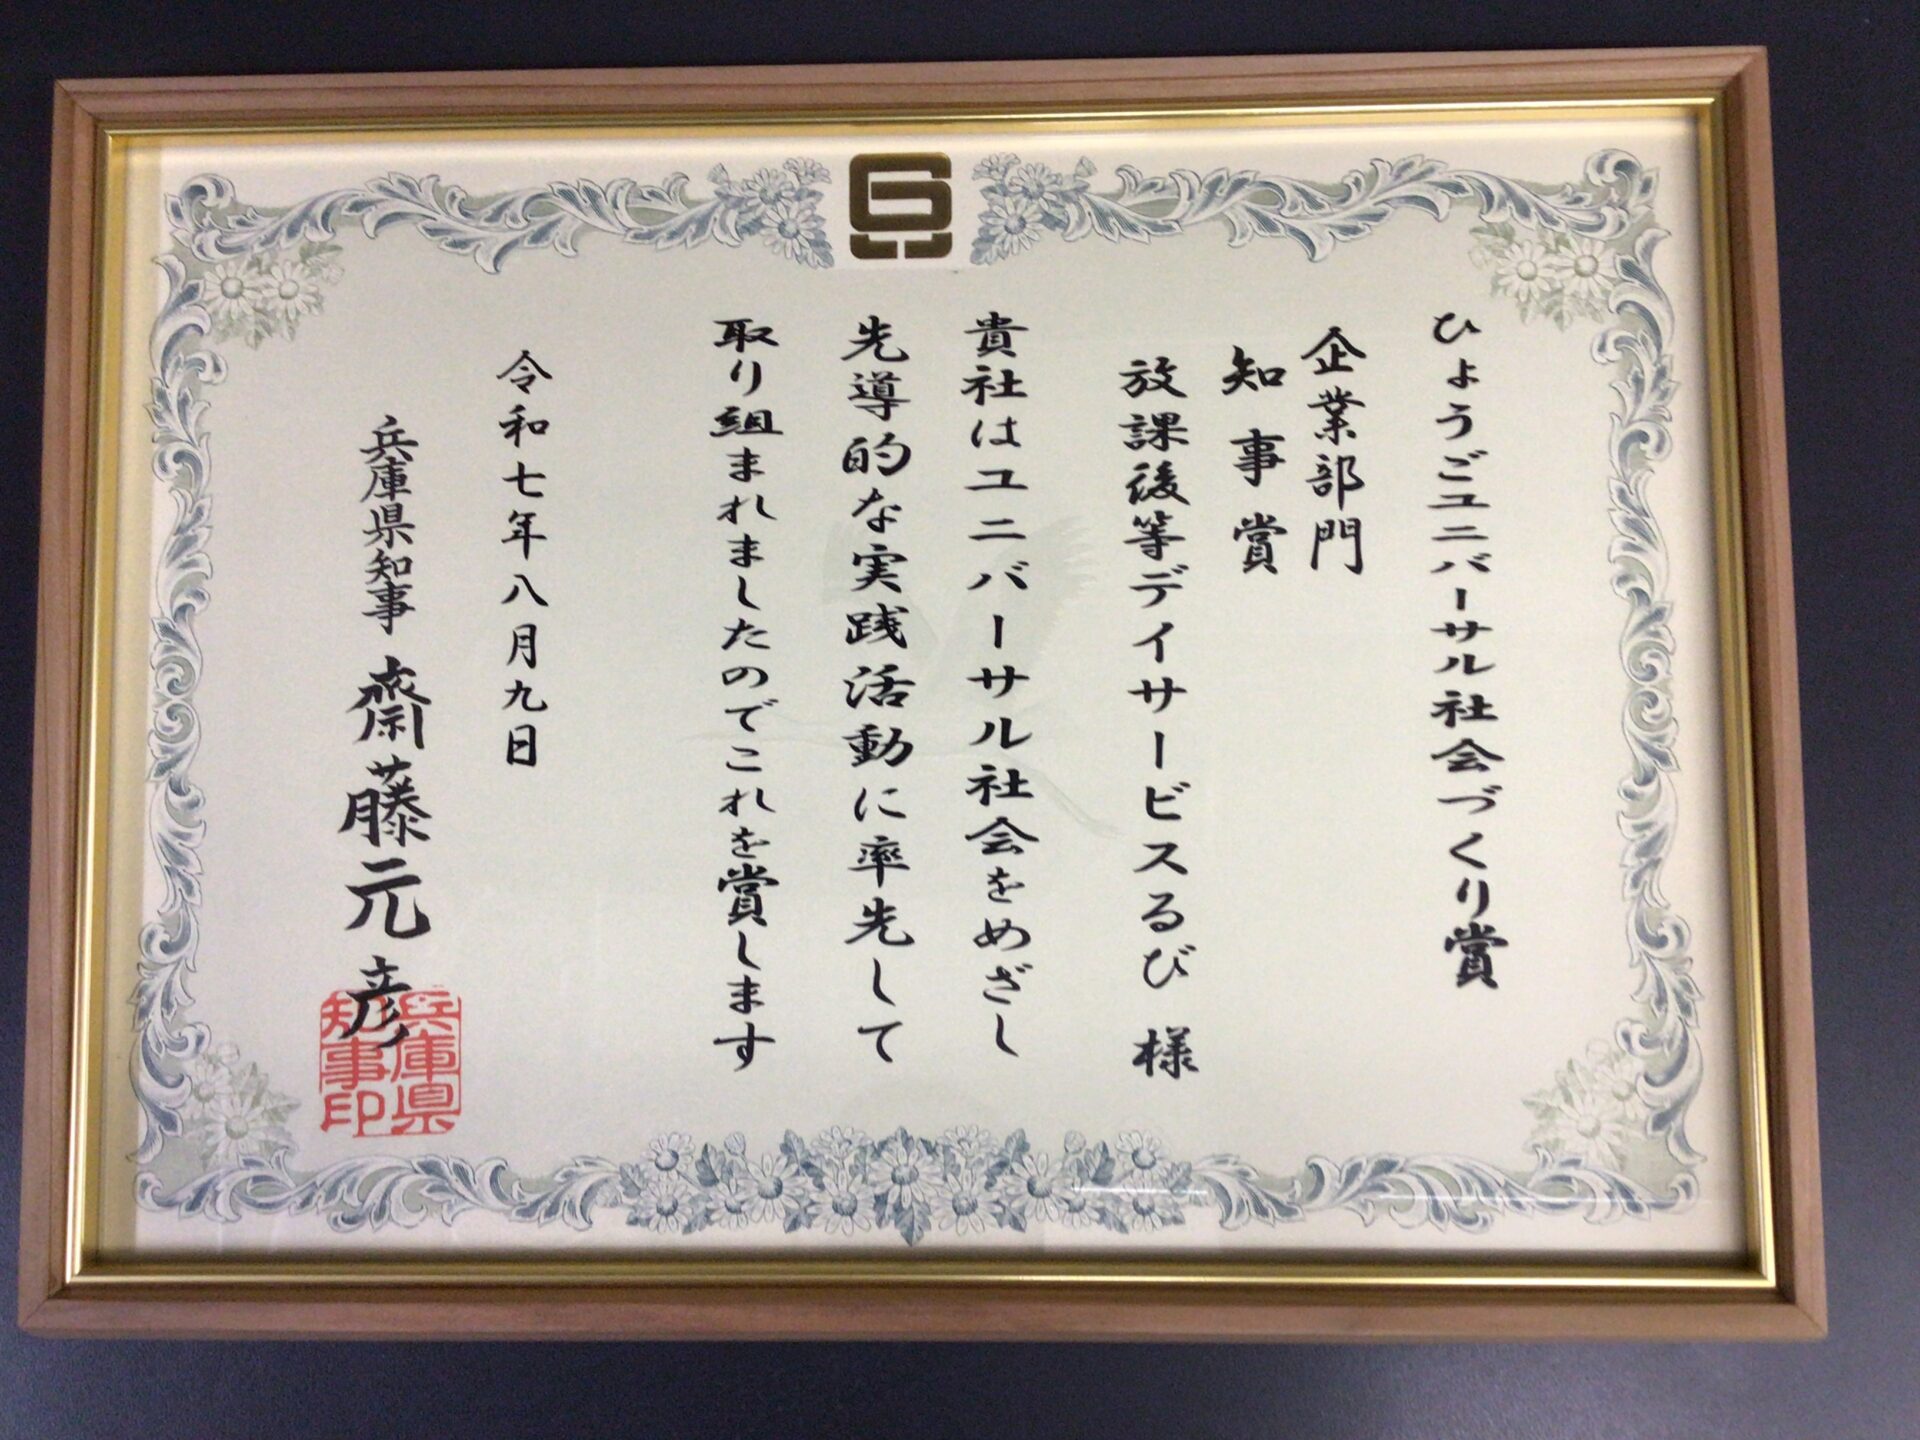 ひょうごユニバーサル社会づくり賞
企業部門
知事賞
放課後等デイサービスるび 様
貴社はユニバーサル社会をめざし
先導的な実践活動に率先して
取り組まれましたのでこれを賞します
令和七年八月九日
兵庫県知事 齋藤元彦
兵庫県
知事印